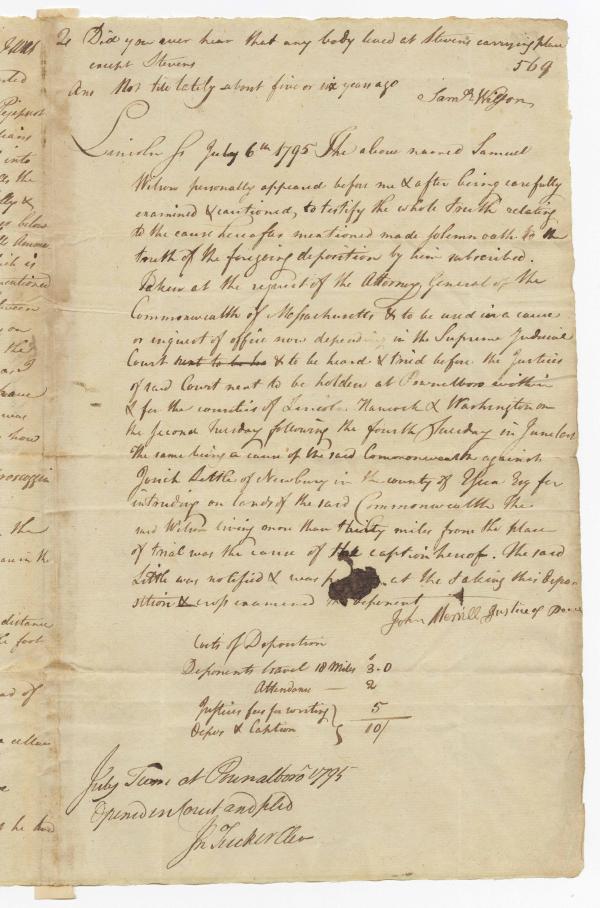 Qs Did you ever hear that any body lived at Stevens carrying place
except Stevens
569
Ans Not till lately about five or six years ago
Saml Wilson
Lincoln Ss July 6th 1795 The above named Samuel
Wilson personally appeared before me & after being carefully
examined & cautioned, to testify the whole truth relating
to the cause hereafter mentioned made solemn oath to the
truth of the foregoing deposition by him subscribed.
Taken at the request of the Attorney General of the
Commonwealth of Massachusetts & to be used in a cause
or inquest of office now depending in the Supreme Judicial
Court next to be ho & to be heard & tried before the Justices
of said Court next to be holden at Pownalboro within
& for the counties of Lincoln Hancock & Washington on
the second Tuesday following the fourth Tuesday in June last
the same being a cause of the said Commonwealth against
Josiah Little of Newbury in the county of Essex Esq for
intruding on lands of the said Commonwealth The
said Wilson living more than thirty miles from the place
of trial was the cause of the caption hereof. The said
Little was notified & was at the taking this depo
sition & cross examined deponent
John Merrill Justice of Peace
Costs of Deposition
Deponents travel 18 Miles 3.0
Attendance — 2
Justices fees for writing 5
Depos & Caption 10/
July Term at Pownalboro 1795
Opened in Court and filed
Jn Tucker Cler